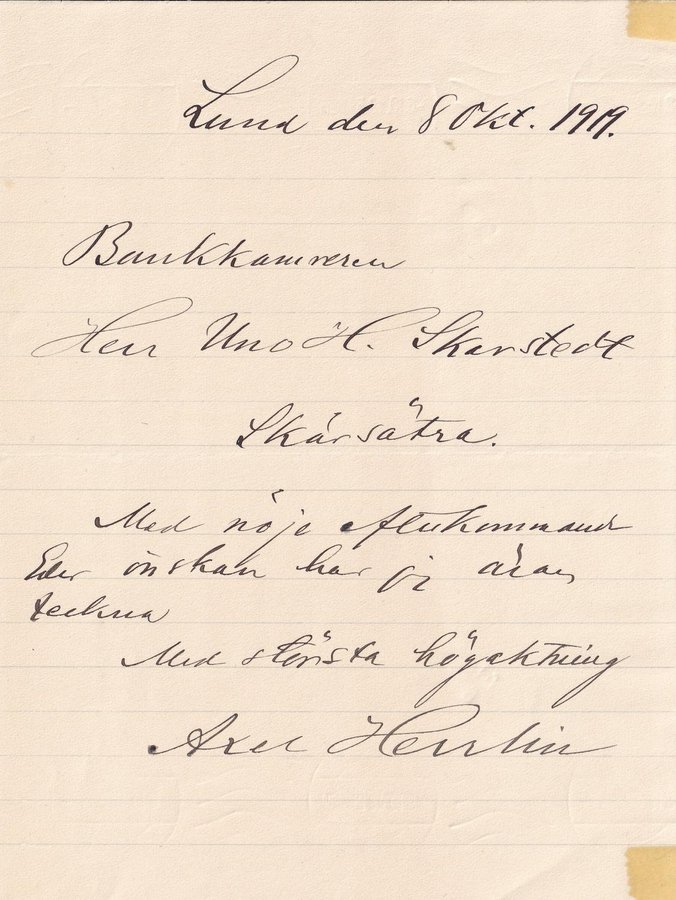 Lund den 8 Okt. 1919.
Bankkamreren
Herr Uno H. Skarstedt
Skårsätra.
Med nöje efterkommande
Eder önskan har jag äran
teckna
Med största högaktning
Axel Herrlin